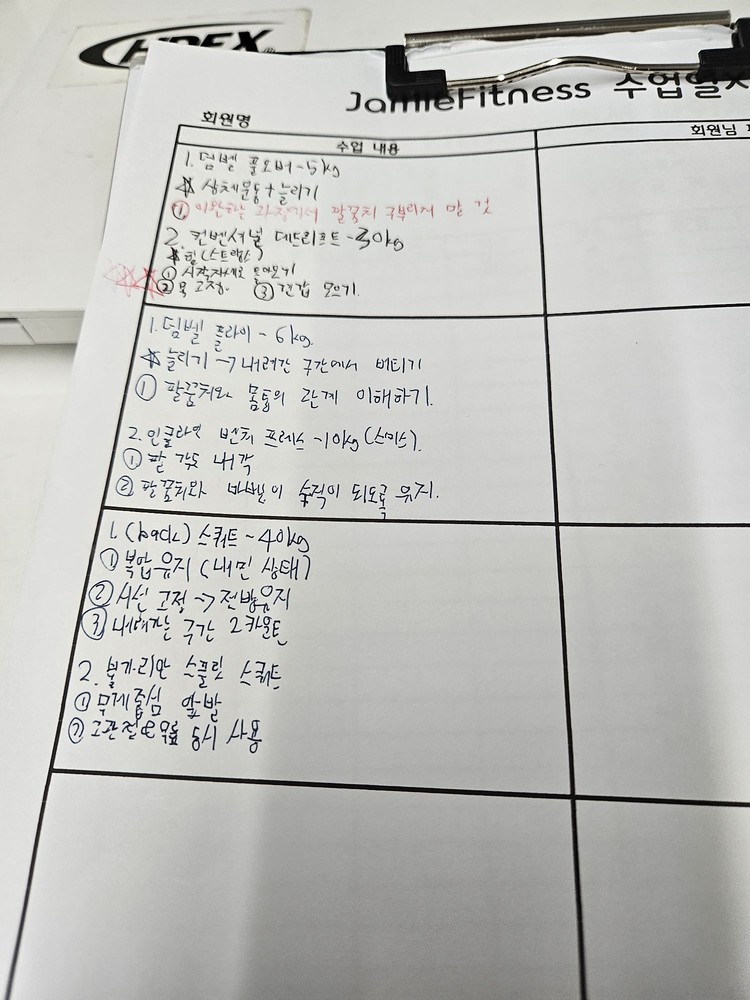 HDEX
JamieFitness 수업일지
회원명
수업 내용
회원님
1. 덤벨 풀오버 - 5kg
★ 상체운동 + 늘리기
① 이완하는 과정에서 팔꿈치 구부리지 말 것
2. 컨벤셔널 데드리프트 - 30kg
★ 힙(스트랩)
① 시작자세로 돌아오기
② 목 고정. ③ 견갑 모으기.
1. 덤벨 플라이 - 6kg.
★ 늘리기 → 내려간 구간에서 버티기
① 팔꿈치와 몸통의 관계 이해하기.
2. 인클라인 벤치 프레스 - 10kg (스미스).
① 팔 각도 내각
② 팔꿈치와 바벨이 수직이 되도록 유지.
1. (back) 스쿼트 - 40kg
① 복압 유지 (내민 상태)
② 시선 고정 → 전방유지
③ 내려가는 구간 2카운트
2. 불가리안 스플릿 스쿼트
① 무게중심 앞발
② 고관절&무릎 동시 사용